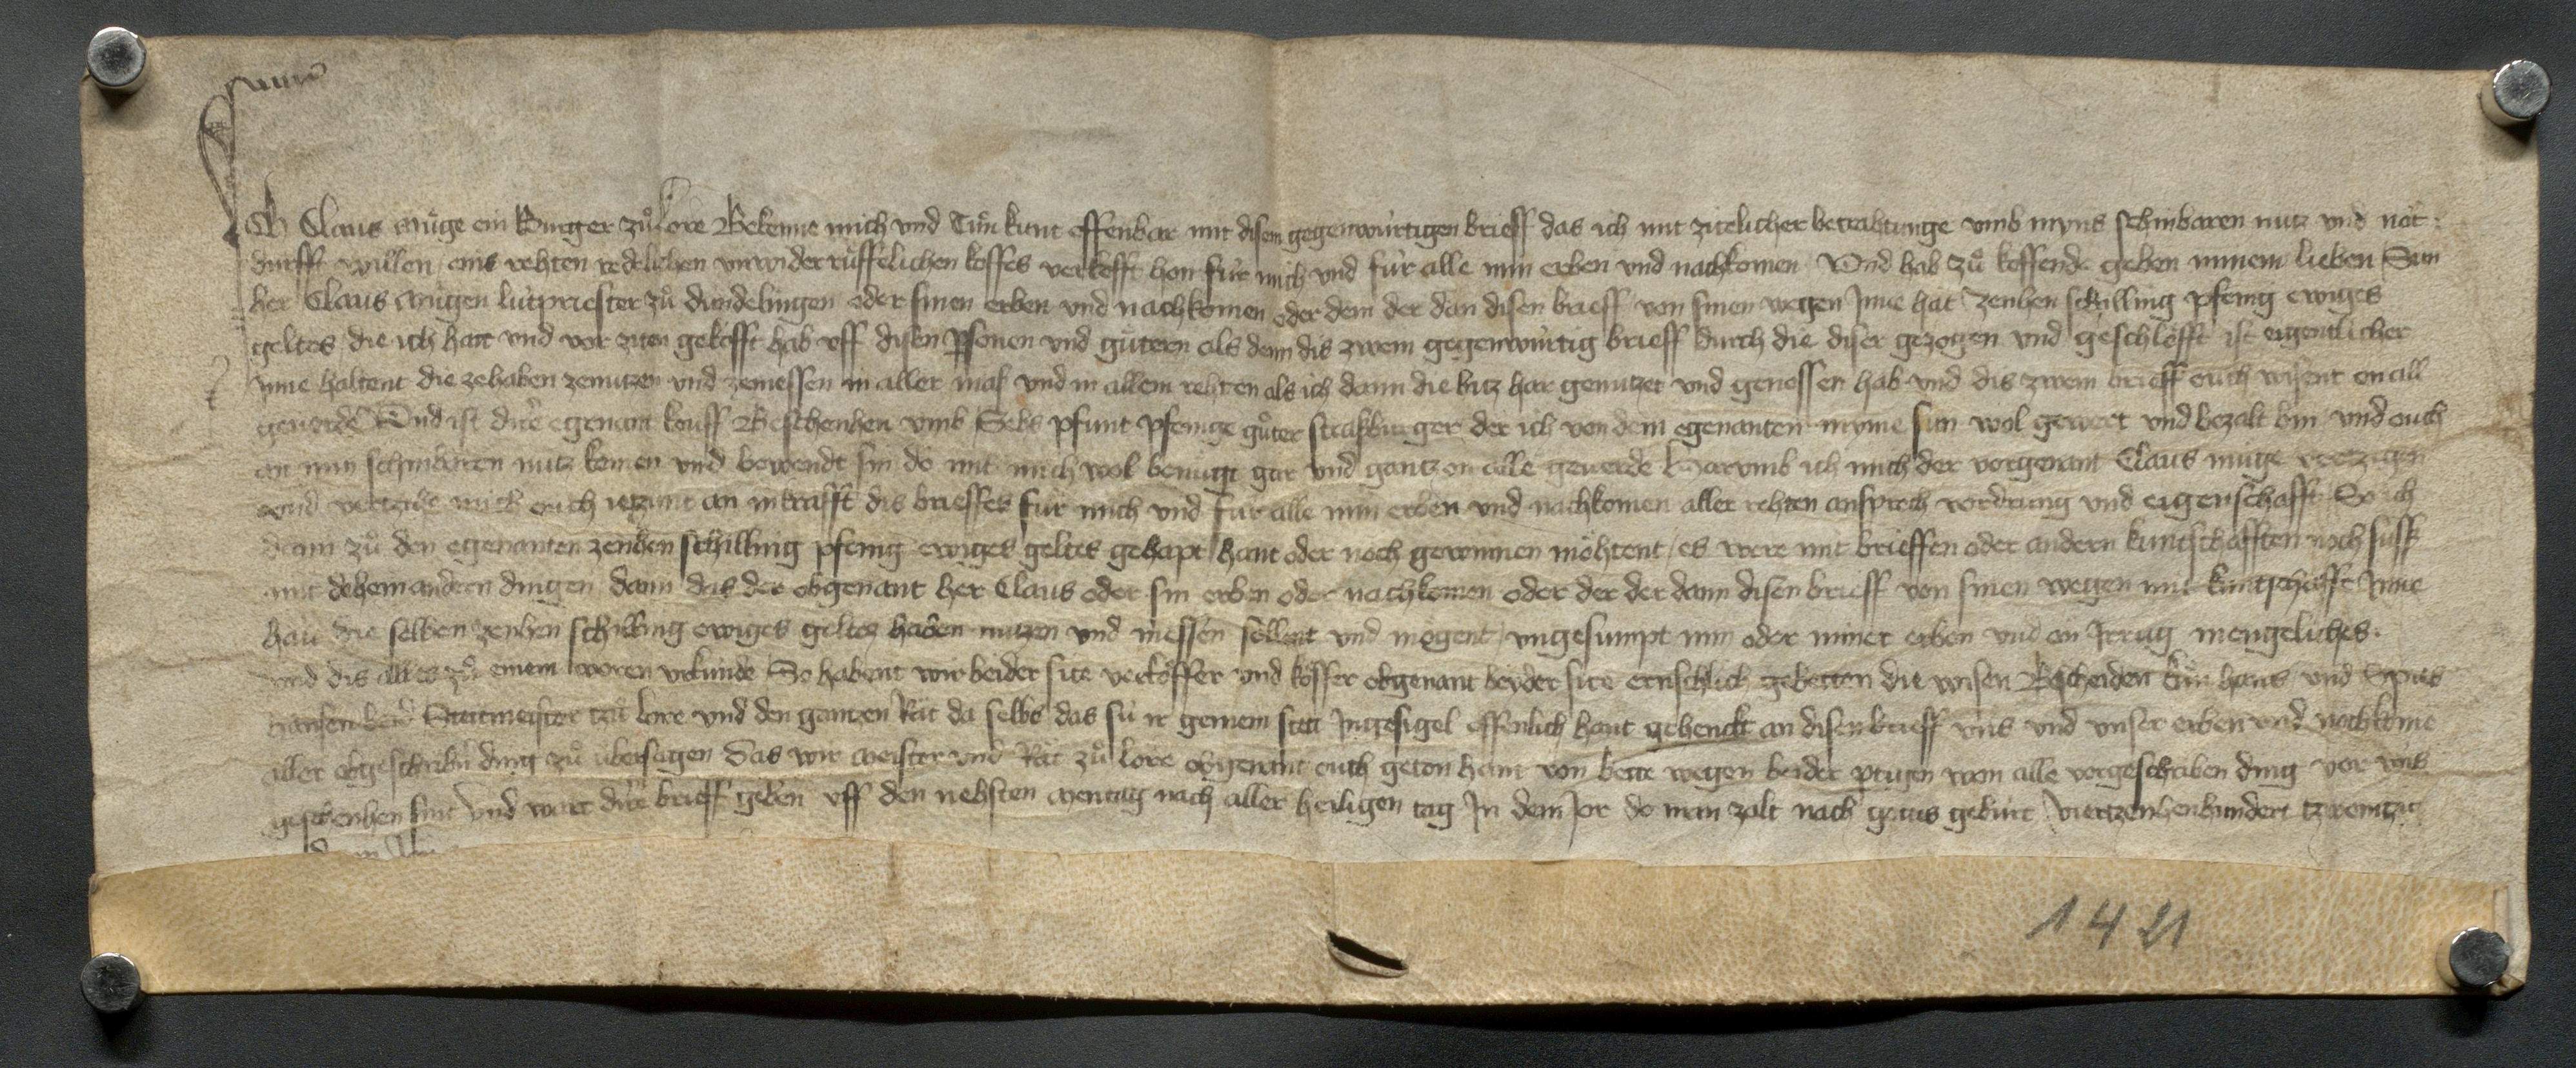 Ich Claus müge ein Burger zů Lore Bekenne mich vnd Tůn kunt offenbar mit disem gegenwürtigen brieff das ich mit zitelicher betrahtunge vmb myns schinbaren nutz vnd nöt
durfft willen eins rehten redelichen vnwiderrüffelichen koffes verkofft hon für mich vnd für alle min erben vnd nachkomen Vnd hab zů koffende geben minem lieben Sun
her Claus mügen lütpriester zů dundelingen oder sinen erben vnd nachkomen oder dem der dan disen brieff von sinen wegen Jnne hat zenhen schilling pfenig ewiges
geltes die ich hatt vnd vor ziten gekofft hab vff disen psonen vnd gütern als denn dis zwem gegenwürtig brieff durch die diser gezogen vnd geschlöfft ist eigentlicher
Jnne haltent die zehaben zenutzen vnd zeniessen in aller mas vnd in allem rehten als ich dann die bitz har genutzet vnd genossen hab vnd dis zwem brieff ouch wisent on all
geuerde Vnd ist dire egenant kouff Beschenhen vmb Sehs pfunt pfenige gůter strasburger der ich von dem egenanten myme sun wol gewert vnd bezalt bin vnd ouch
an min schinbaren nutz komen vnd bewendt sin do mit mich wol benügt gar vnd gantz on alle geuerde Harvmb ich mich der vorgenant Claus müge vertzigen
vnd vertzihe mich ouch ietzunt an inkrafft dis brieffes für mich vnd für alle min erben vnd nachkomen aller rehten ansproch vordrung vnd eigenschafft So ich
dann zů den egenanten zenhen schilling pfenig ewiges geltes gehapt hant oder noch gewinnen möhtent es were mit brieffen oder andern kuntschafften noch suss
mit dehein andern dingen dann das der obgenant her Claus oder sin erben oder nachkomen oder der der dann disen brieff von sinen wegen mit kuntschafft Jnne
hau die selben zenhen schilling ewiges geltez haben nutzen vnd niessen sollent vnd mögent vngesumpt min oder miner erben vnd on Jrrug mengeliches
vnd dis alles zů einem woren vrkunde So habent wir beider site verköffer vnd köffer obgenant beyder site ernschlich gebetten die wisen Bescheiden hans vnd
hansen Stettmeister zů lore vnd den gantzen Rät da selbs das sü ir gemein stett Jngesigel offenlich hant gehenckt an disen brieff vns vnd vnser erben vnd nochkome
aller obgeschribn ding zů übersagen Das wir meister vnd Rät zů lore obgenant ouch geton hant von bette wegen beider ptyen wan alle vorgeschriben ding vor vns
geschenhen sint Vnd wart dire brieff geben vff den nehsten mentag nach aller heiligen tag Jn dem Jor do man zalt nach gotts gebürt viertzenhenhundert tzwentzig
1421